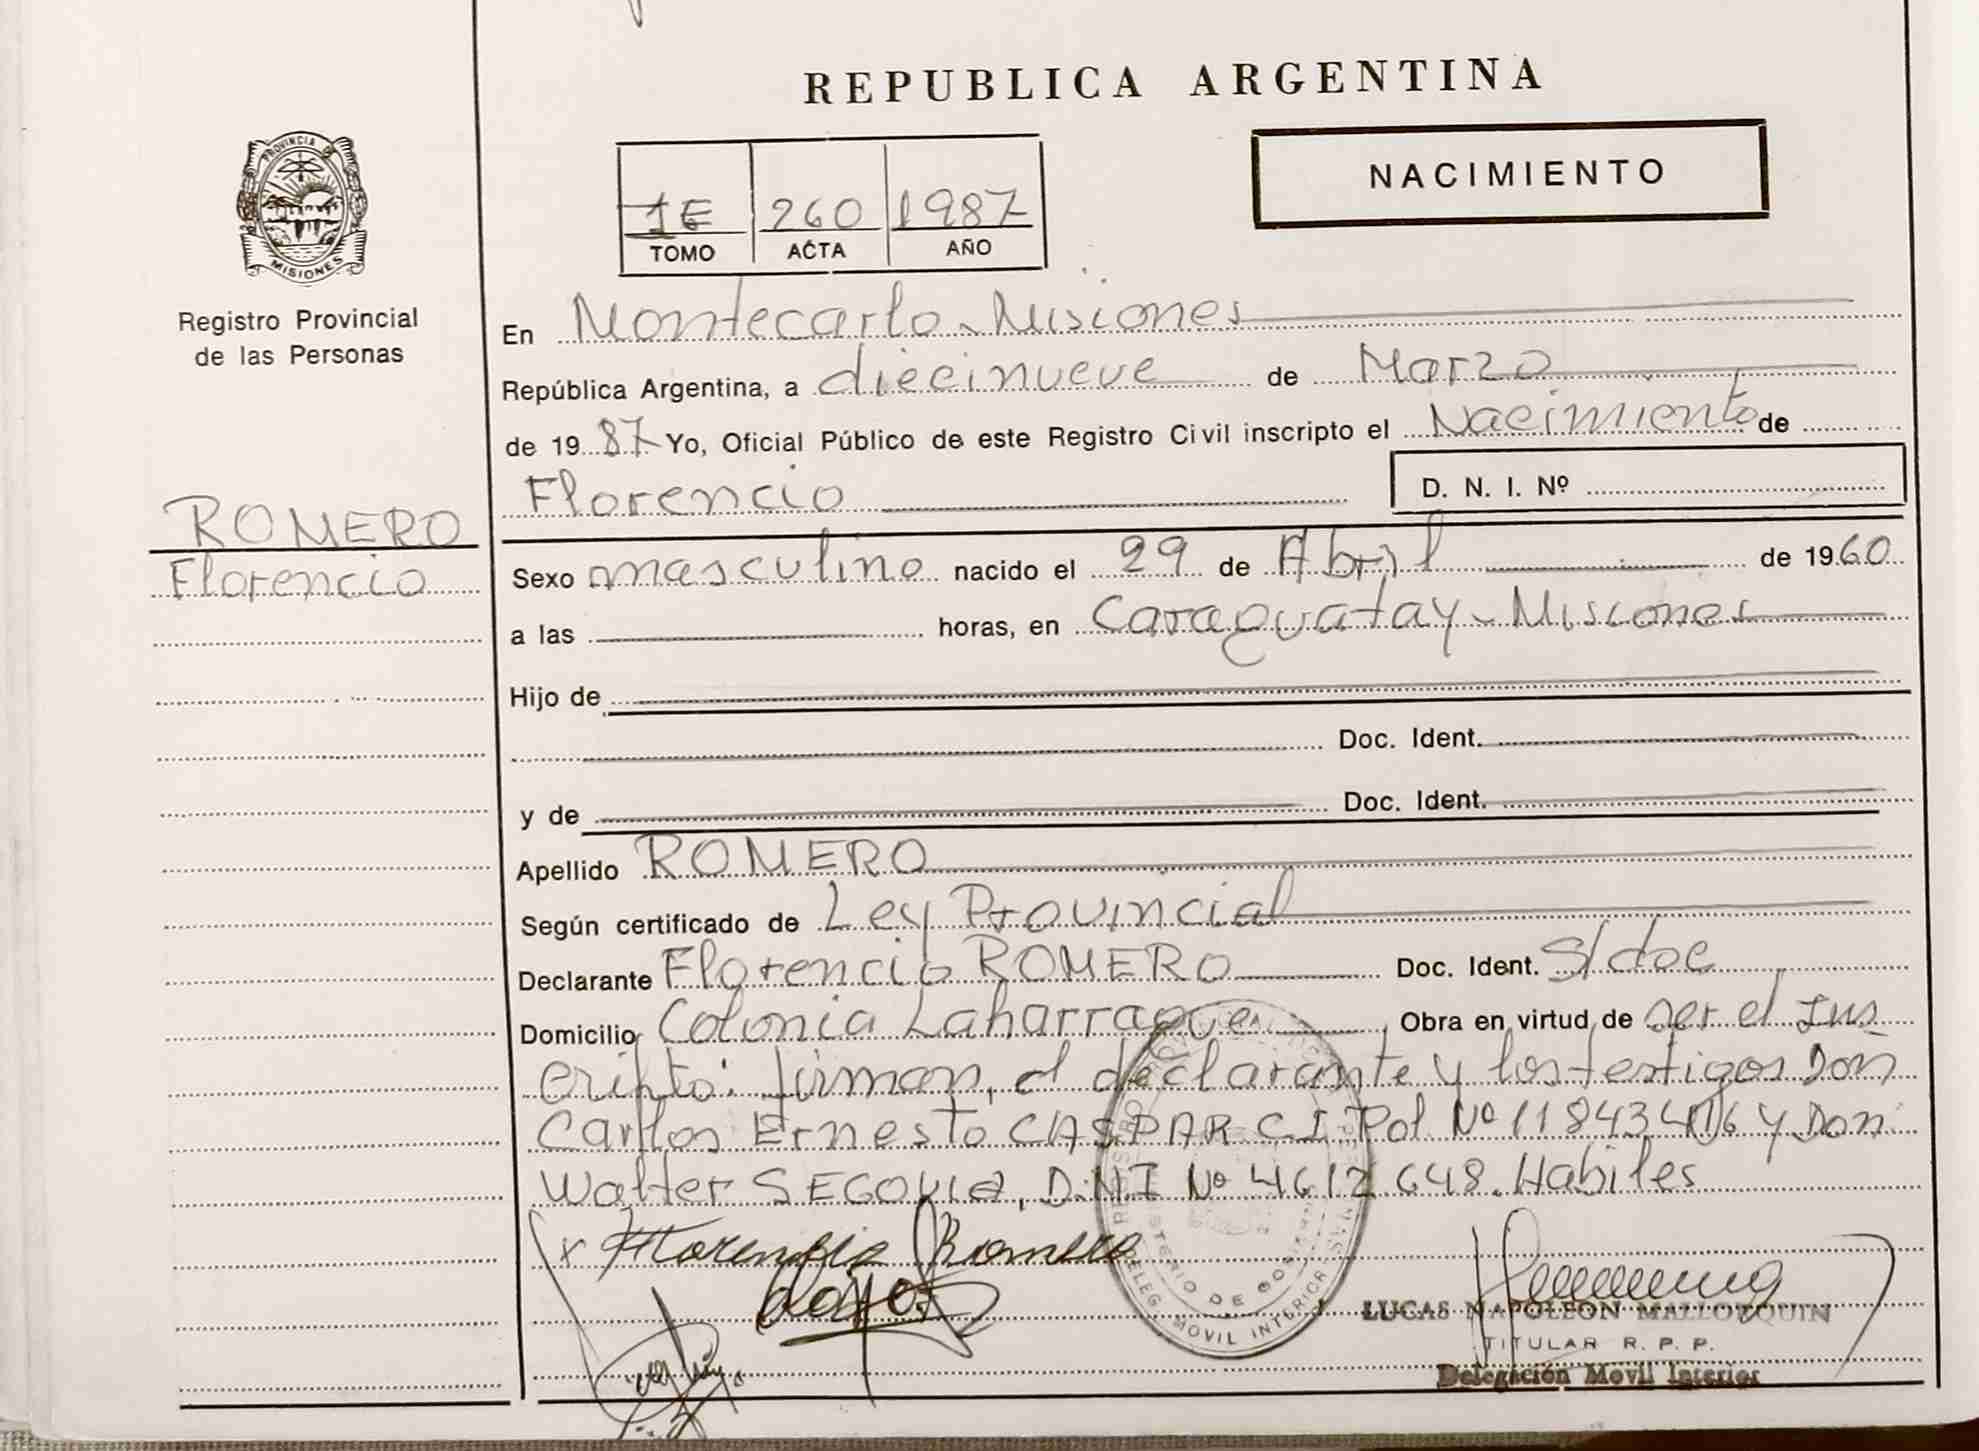 REPUBLICA ARGENTINA
PROVINCIA DE
MISIONES
Registro Provincial
de las Personas
1E 260 1987
TOMO ACTA AÑO
NACIMIENTO
En Montecarlo - Misiones
República Argentina, a diecinueve de Marzo
de 1987 Yo, Oficial Público de este Registro Civil inscripto el Nacimiento de
Florencio
D. N. I. Nº
ROMERO
Florencio
Sexo masculino nacido el 29 de Abril de 1960
a las horas, en Caraguatay - Misiones
Hijo de
Doc. Ident.
y de Doc. Ident.
Apellido ROMERO
Según certificado de Ley Provincial
Declarante Florencio ROMERO Doc. Ident. S/doc
Domicilio Colonia Laharrague Obra en virtud de ser el Ins
cripto: firman, el declarante y los testigos Don
Carlos Ernesto CASPAR C.I. Pol Nº y Don
Walter SEGOVIA, D.N.I Nº 4612648. Habiles
x Florencio Romero
MINISTERIO DE GOBIERNO
DELEG MOVIL INTERIOR
LUCAS NAPOLEON MALLORQUIN
TITULAR R. P. P.
Delegación Movil Interior